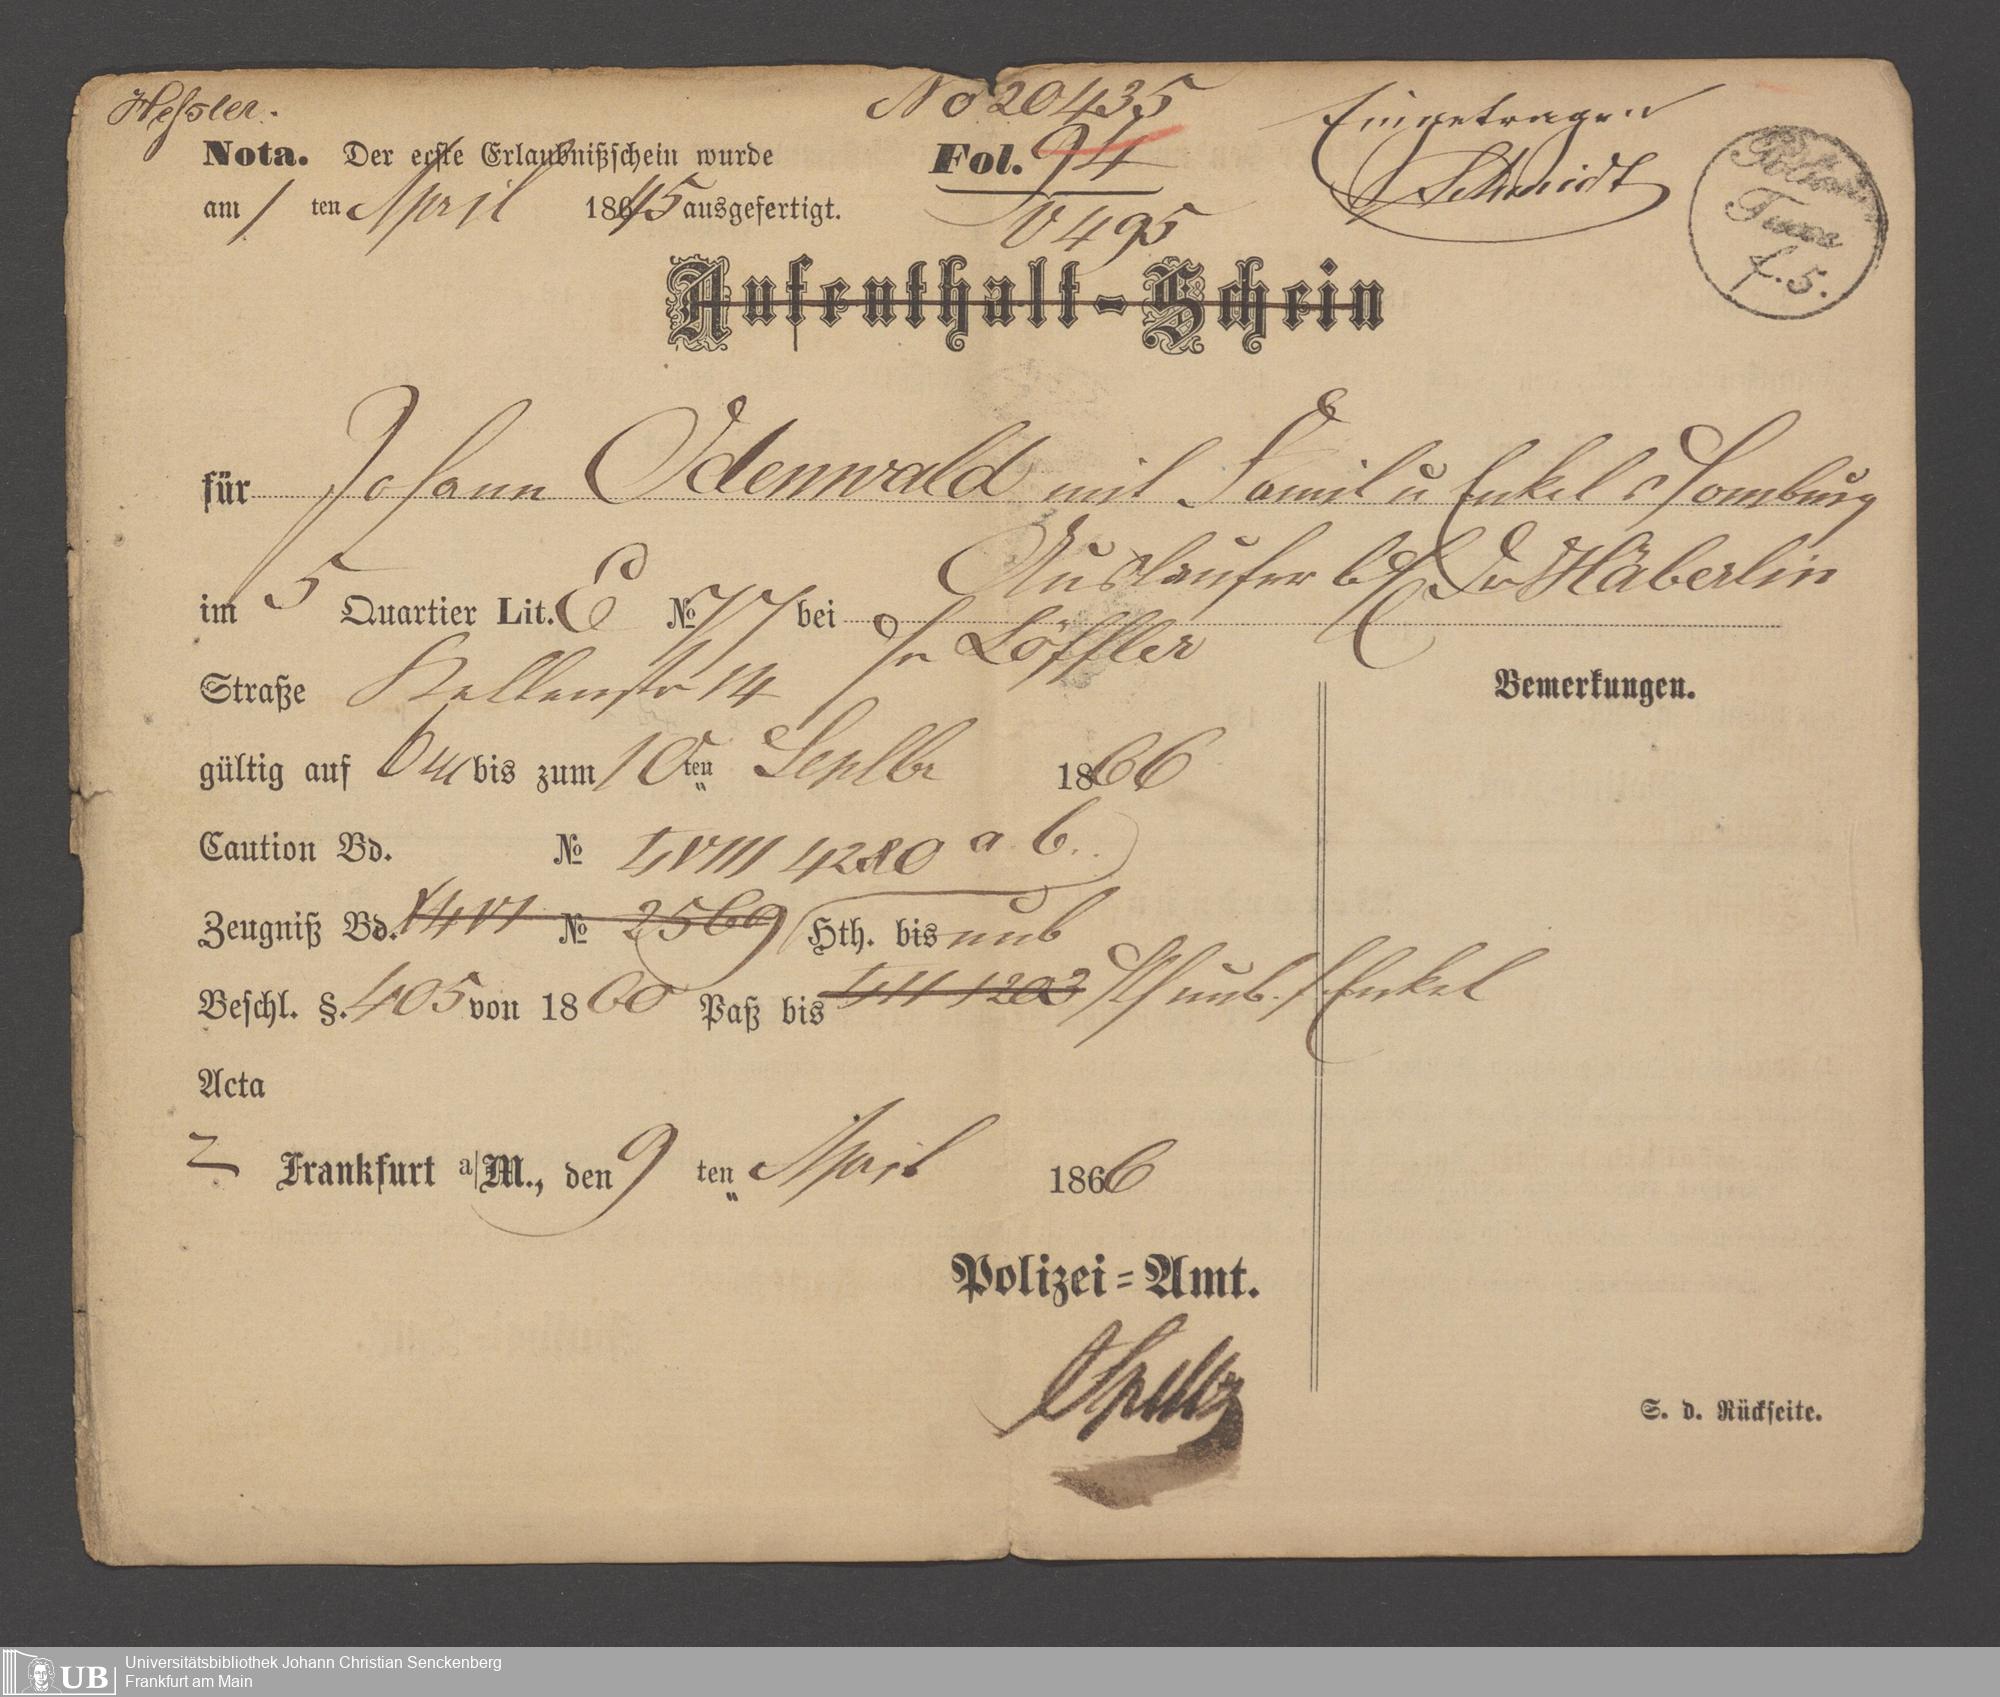 Heßler.
No 20435
Eingetragen
Schmidt
Nota. Der erste Erlaubnißschein wurde
Fol. 94
am 1 ten April 1845 ausgefertigt.
V 495
f. 5.
Aufenthalt-Schein
für Johann Odenwald mit Famil u Enkel Homburg
Auslaufer bei Dr Häberlin
im 5 Quartier Lit. E No 77 bei Hr Löffler
Straße 14
gültig auf 6 M bis zum 10 ten Septbr 1866
Bemerkungen.
Caution Bd. No LVIII 4280 a b.
Zeugniß Bd. No 2569 Hth. bis unb
Beschl. §. 405 von 1860 Paß bis LII 1203 unb. f Enkel
Acta
Frankfurt a/M., den 9 ten April 1866
Polizei-Amt.
S. d. Rückseite.
UB
Universitätsbibliothek Johann Christian Senckenberg
Frankfurt am Main